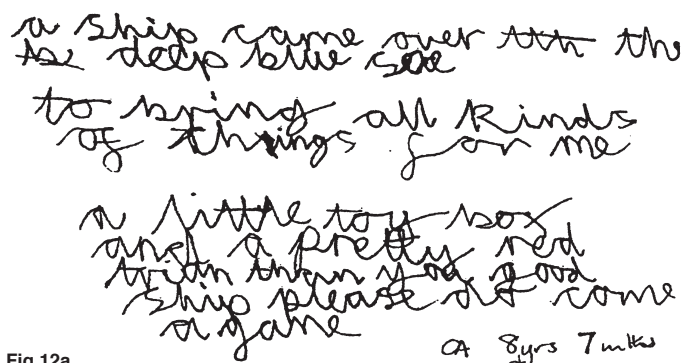 a ship came over tth the
deep blue sea
to bring all kinds
of things for me
a little toy box
and a pretty red
train than you good
ship please do come
agane
CA 8yrs 7mths
Fig 12a